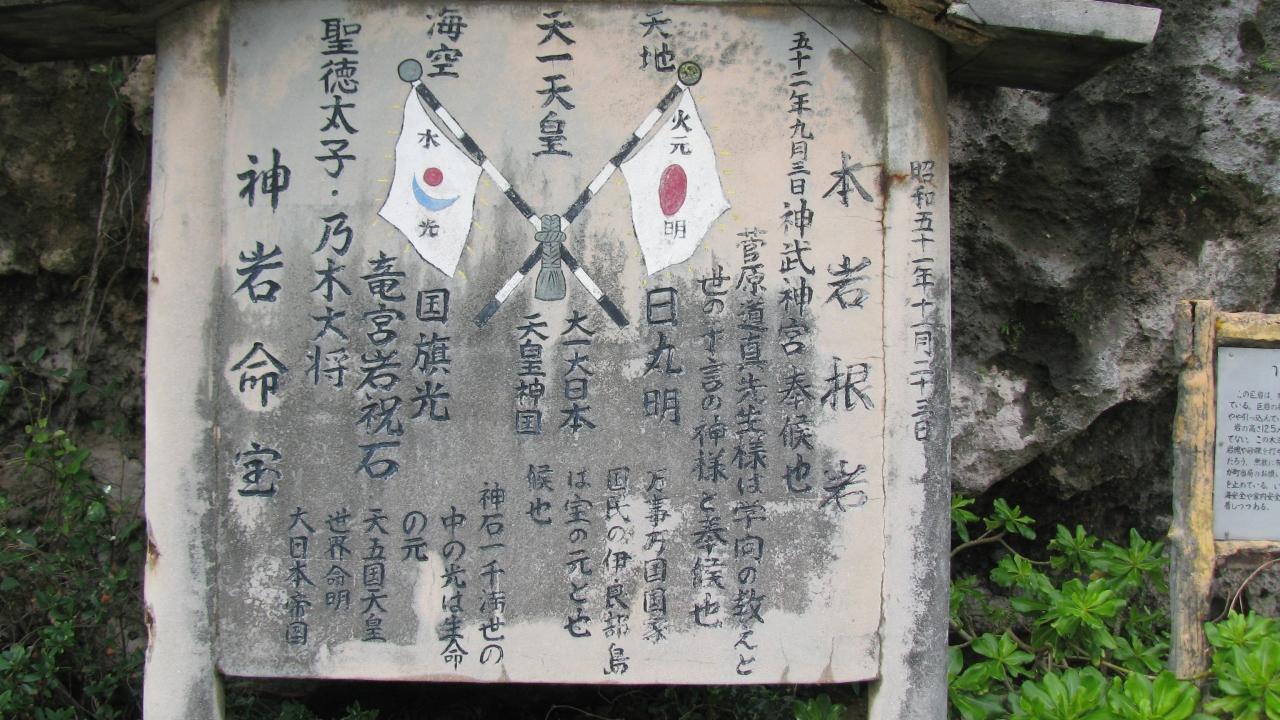 昭和五十一年十一月二十三日
本岩根岩
五十二年九月三日神武神宮奉候也
菅原道真先生様は学向の教えと
世の十言の神様と奉候也
天地
火元
明
日丸明
万事万国国家
国民の伊良部島
は室の元と也
候也
天一天皇
大一大日本
天皇神国
海空
水
光
国旗光
竜宮岩祝石
神石一千満世の
中の光は生命
の元
天五国天皇
世界命明
大日本帝国
聖徳太子・乃木大将
神岩命宝